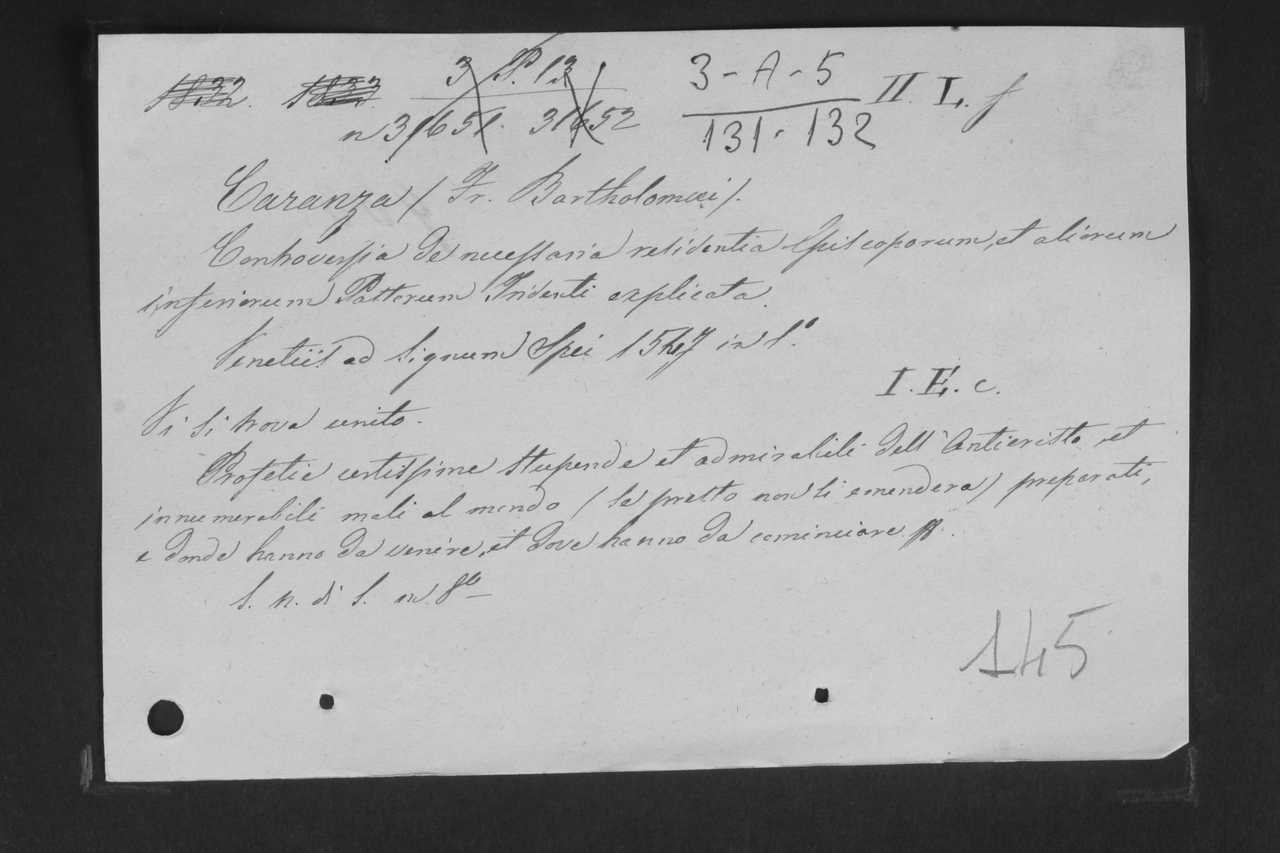 1832. 1833. 3 P. 13 3-A-5 II. L. f
n 31651. 31652 131-132
Caranza (Fr. Bartholomei).
Controversia de necessaria residentia Episcoporum, et aliorum
inferiorum Pastorum Tridenti explicata.
Venetiis ad Signum Spei 1547 in 8.º
I. E. c.
Vi si trova unito.
Profetie certissime stupende et admirabili dell'Anticristo, et
innumerabili mali al mondo (se presto non si emenderà) preparati,
e donde hanno da venire, et dove hanno da cominciare
S. n. di S. in 8º
145